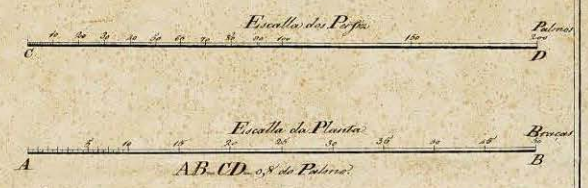 Escalla dos Perfiz
Palmos
10 20 30 40 50 60 70 80 90 100 150 200
C D
Escalla da Planta
Braças
5 10 15 20 25 30 35 40 45 50
A B
AB=CD=0,8 do Palmo.